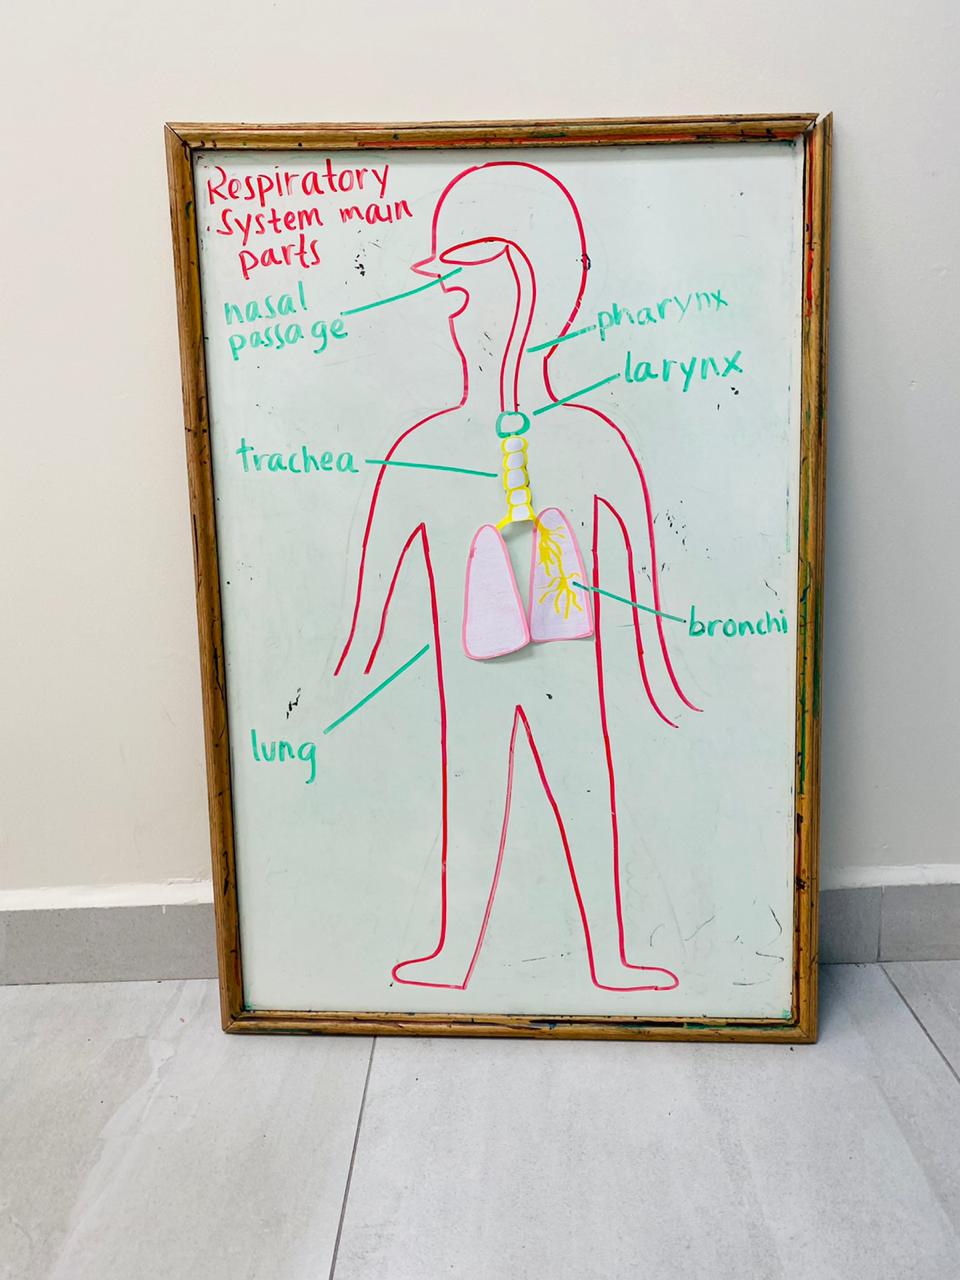 Respiratory
System main
parts
nasal
passage
pharynx
larynx
trachea
bronchi
lung